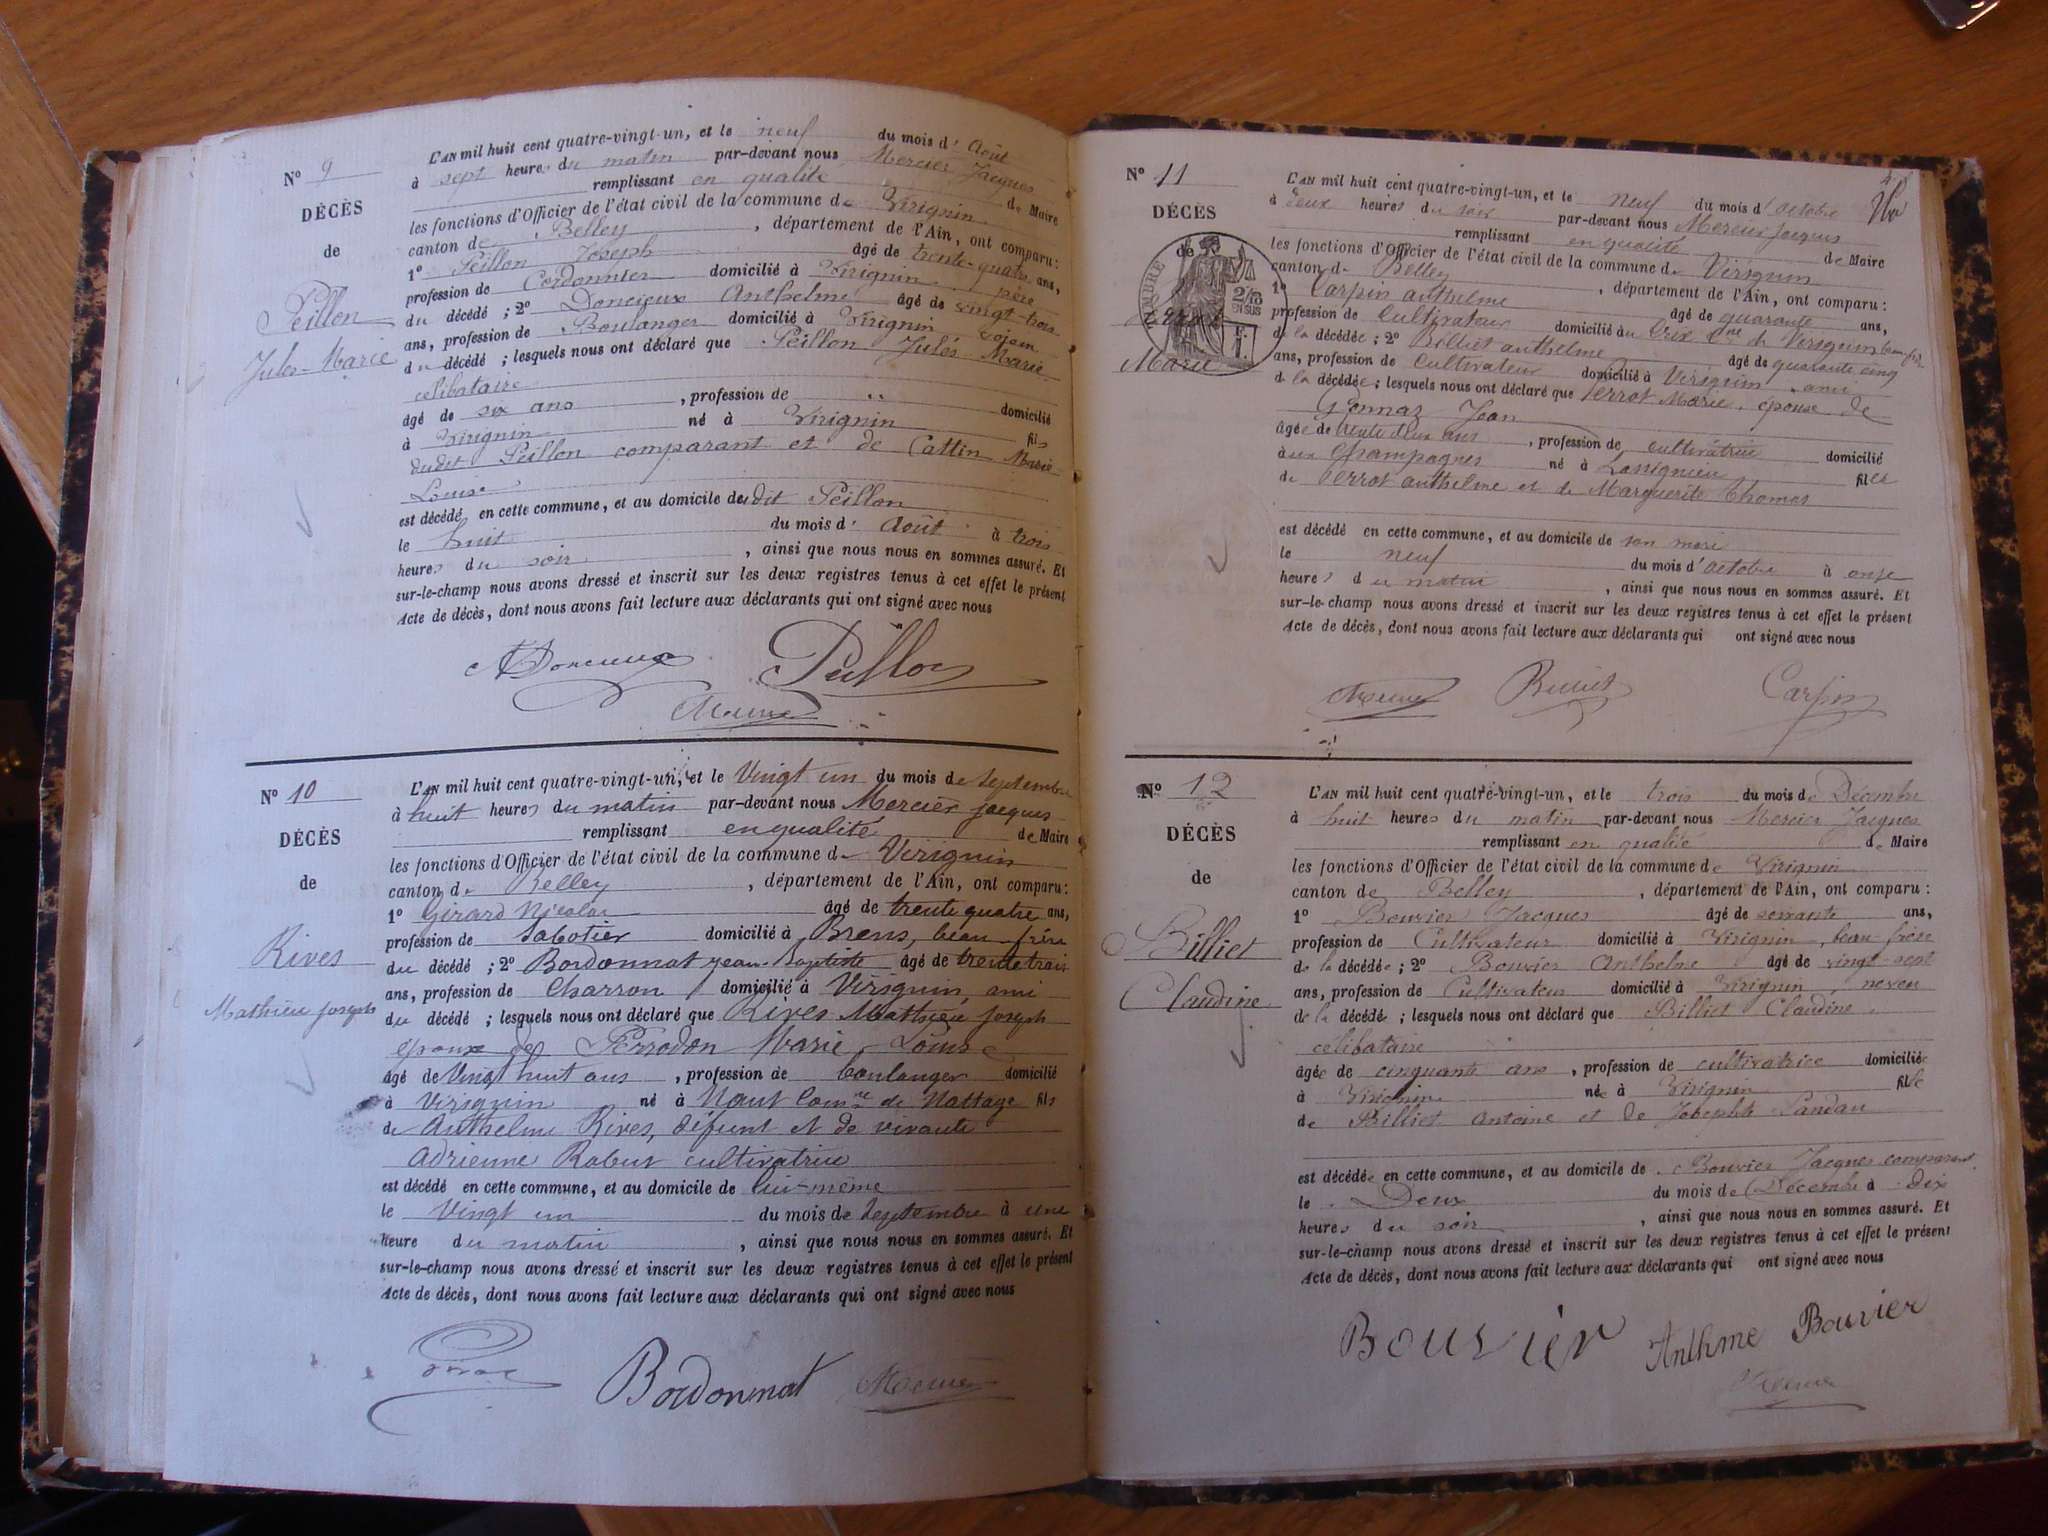 N° 9
DÉCÈS
de
Peillon
Jules-Marie
L'AN mil huit cent quatre-vingt-un, et le neuf du mois d'Août
à sept heures du matin par-devant nous Mercier Jacques
remplissant en qualité de Maire
les fonctions d'Officier de l'état civil de la commune de Virignin
canton de Belley, département de l'Ain, ont comparu:
1° Peillon Joseph âgé de trente-quatre ans,
profession de Cordonnier domicilié à Virignin père
du décédé ; 2° Doncieux Anthelme âgé de vingt-trois
ans, profession de Boulanger domicilié à Virignin voisin
du décédé ; lesquels nous ont déclaré que Peillon Jules Marie
célibataire
âgé de six ans, profession de " domicilié
à Virignin né à Virignin fils
dudit Peillon comparant et de Cattin Marie
Louise
est décédé en cette commune, et au domicile dudit Peillon
le huit du mois d'Août à trois
heures du soir, ainsi que nous nous en sommes assuré. Et
sur-le-champ nous avons dressé et inscrit sur les deux registres tenus à cet effet le présent
Acte de décès, dont nous avons fait lecture aux déclarants qui ont signé avec nous
A Doncieux Peillon
Mercier
N° 10
DÉCÈS
de
Rives
Mathieu joseph
L'AN mil huit cent quatre-vingt-un, et le Vingt un du mois de Septembre
à huit heures du matin par-devant nous Mercier jacques
remplissant en qualité de Maire
les fonctions d'Officier de l'état civil de la commune de Virignin
canton de Belley, département de l'Ain, ont comparu:
1° Girard Nicolas âgé de trente quatre ans,
profession de Sabotier domicilié à Brens, beau-frère
du décédé ; 2° Bordonnat jean-Baptiste âgé de trente trois
ans, profession de Charron domicilié à Virignin, ami
du décédé ; lesquels nous ont déclaré que Rives Mathieu joseph
époux de Perrodon Marie Louise
âgé de Vingt huit ans, profession de boulanger domicilié
à Virignin né à Nant Comne de Nattage fils
de Anthelme Rives, défunt et de vivante
Adrienne Rabut cultivatrice
est décédé en cette commune, et au domicile de lui-même
le Vingt un du mois de Septembre à une
heure du matin, ainsi que nous nous en sommes assuré. Et
sur-le-champ nous avons dressé et inscrit sur les deux registres tenus à cet effet le présent
Acte de décès, dont nous avons fait lecture aux déclarants qui ont signé avec nous
Bordonnat Mercier
N° 11
DÉCÈS
de
Marie
TIMBRE
2/10
EN SUS
L'AN mil huit cent quatre-vingt-un, et le neuf du mois d'octobre
à deux heures du soir par-devant nous Mercier Jacques
remplissant en qualité de Maire
les fonctions d'Officier de l'état civil de la commune de Virignin
canton de Belley, département de l'Ain, ont comparu:
1° Carpin anthelme âgé de quarante ans,
profession de Cultivateur domicilié au Crix Cne de Virignin beau-frère
de la décédée ; 2° Billiet anthelme âgé de quarante cinq
ans, profession de cultivateur domicilié à Virignin ami
de la décédée ; lesquels nous ont déclaré que Perrot Marie épouse de
Gonnaz Jean
âgée de trente deux ans, profession de cultivatrice domicilié
aux Champagnes né à Lassignieu fille
de Perrot anthelme et de Marguerite Thomas
est décédé en cette commune, et au domicile de son mari
le neuf du mois d'octobre à onze
heures du matin, ainsi que nous nous en sommes assuré. Et
sur-le-champ nous avons dressé et inscrit sur les deux registres tenus à cet effet le présent
Acte de décès, dont nous avons fait lecture aux déclarants qui ont signé avec nous
Mercier Billiet Carpin
N° 12
DÉCÈS
de
Billiet
Claudine
L'AN mil huit cent quatre-vingt-un, et le trois du mois de Décembre
à huit heures du matin par-devant nous Mercier Jacques
remplissant en qualité de Maire
les fonctions d'Officier de l'état civil de la commune de Virignin
canton de Belley, département de l'Ain, ont comparu:
1° Bouvier Jacques âgé de soixante ans,
profession de Cultivateur domicilié à Virignin, beau-frère
de la décédée ; 2° Bouvier Anthelme âgé de vingt-sept
ans, profession de Cultivateur domicilié à Virignin, neveu
de la décédé ; lesquels nous ont déclaré que Billiet Claudine,
célibataire
âgée de cinquante ans, profession de cultivatrice domiciliée
à Virignin née à Virignin fille
de Billiet Antoine et de Josephte Landau
est décédée en cette commune, et au domicile de Bouvier Jacques comparant
le Deux du mois de Décembre à dix
heures du soir, ainsi que nous nous en sommes assuré. Et
sur-le-champ nous avons dressé et inscrit sur les deux registres tenus à cet effet le présent
Acte de décès, dont nous avons fait lecture aux déclarants qui ont signé avec nous
Bouvier Anthme Bouvier
Mercier